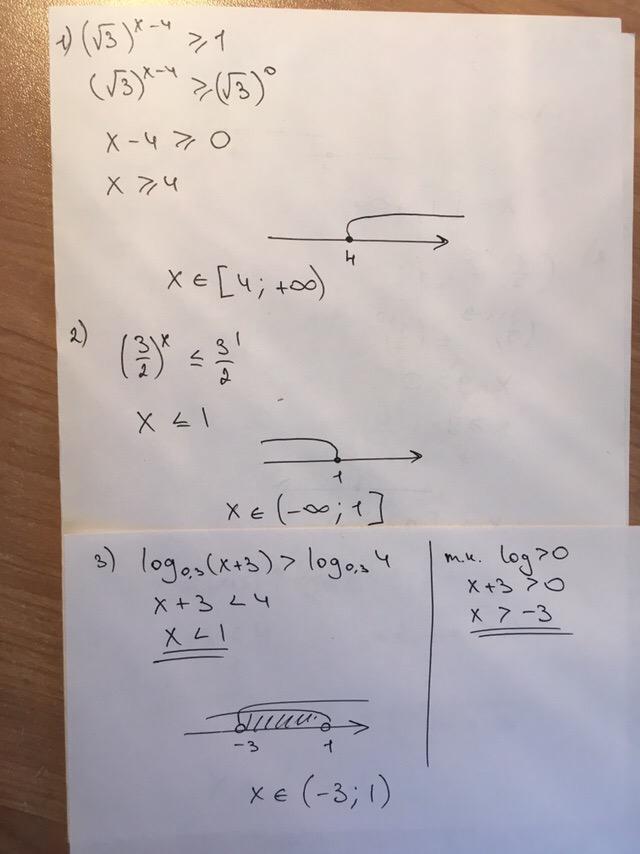 1) (√3)^(x-4) ⩾ 1
(√3)^(x-4) ⩾ (√3)^0
x - 4 ⩾ 0
x ⩾ 4
4
x ∈ [4; +∞)
2) (3/2)^x ≤ 3/2^1
x ≤ 1
1
x ∈ (-∞; 1]
3) log₀,₃(x+3) > log₀,₃ 4
x + 3 < 4
x < 1
-3 1
x ∈ (-3; 1)
т.к. log > 0
x+3 > 0
x > -3